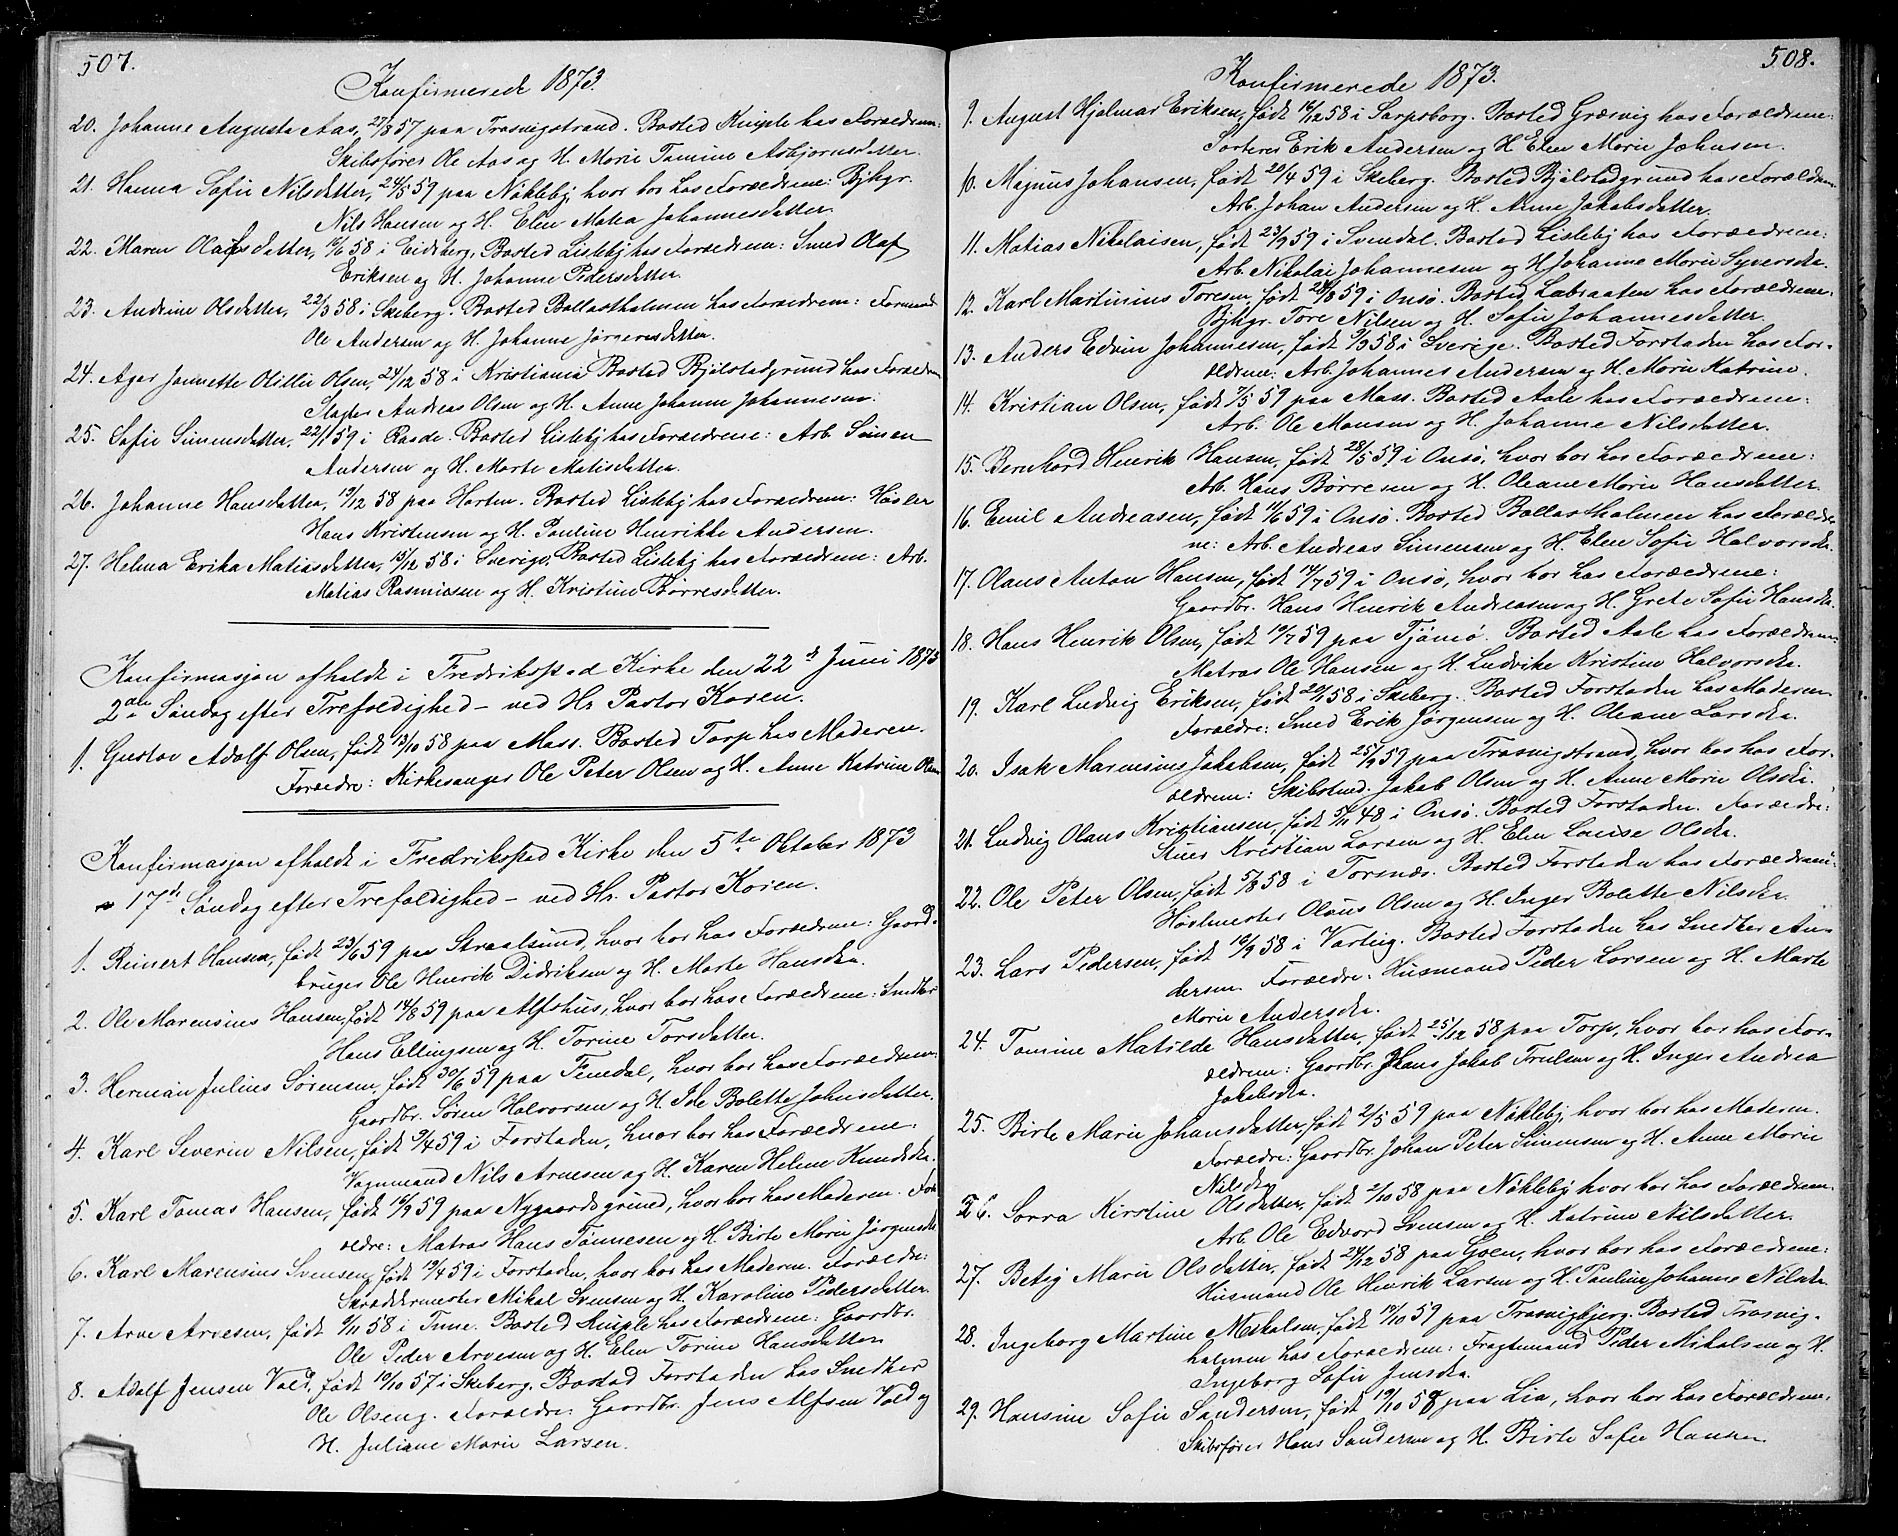 507.
Konfirmerede 1873.
20. Johanne Augusta Aas, 27/8 57 paa Trosvigstrand. Bosted Kniple hos Foræeldrene:
Skibsfører Ole Aas og H. Marie Tomine Asbjørnsdatter.
21. Hanna Sofie Nilsdatter, 24/5 59 paa Nøkleby, hvor bor hos Foræeldrene: Bjhgr.
Nils Hansen og H. Elen Matea Johannesdatter.
22. Maren Olafsdatter, 19/6 58 i Eidsberg, Bosted Lisleby hos Foræeldrene: Smed Olaf
Eriksen og H. Johanne Pedersdatter.
23. Andrine Olsdatter, 22/3 58 i Skeberg. Bosted Ballastholmen hos Foræeldrene: Formand
Ole Andersen og H. Johanne Jørgensdatter.
24. Ager Jannette Olsen, 24/12 58 i Kristiania Bosted Bjølstadgrund hos Foræeldrene
Slagter Andreas Olsen og H. Anne Johanne Johannesen.
25. Sofie Simensdatter, 22/1 59 i Raade. Bosted Lisleby hos Foræeldrene: Arb. Simen
Andersen og H. Marte Matisdatter.
26. Johanne Hansdatter, 19/12 58 paa Horten. Bosted Lisleby hos Foræeldrene: Høvler
Hans Kristensen og H. Pauline Henrikke Andersen.
27. Helma Erika Matiasdatter, 15/12 58 i Sverige, Bosted Lisleby hos Foræeldrene: Arb.
Matias Rasmussen og H. Kristine Børresdatter.
Konfirmasjon afholdt i Fredrikstad Kirke den 22de Juni 1873
2den Søndag efter Trefoldighed – ved Hr Pastor Koren.
1. Gustav Adolf Olsen, født 13/10 58 paa Moss. Bosted Torp hos Moderen.
Foræeldre: Kirkesanger Ole Peter Olsen og H. Anne Katrine Olsen
Konfirmasjon afholdt i Fredrikstad Kirke den 5te Oktober 1873
17de Søndag efter Trefoldighed – ved Hr. Pastor Koren.
1. Reinert Hansen, født 23/6 59 paa Straalsund, hvor bor hos Foræeldrene: Gaard-
bruger Ole Henrik Didriksen og H. Marte Hansdtr.
2. Ole Marensius Hansen, født 14/8 59 paa Alfshus, hvor bor hos Foræeldrene: Snedker
Hans Ellingsen og H. Torine Torsdatter.
3. Herman Julius Sørensen, født 30/6 59 paa Femdal, hvor bor hos Foræeldrene:
Gaardbr. Søren Halvorsen og H. Ide Bolette Johnsdatter.
4. Karl Severin Nilsen, født 9/4 59 i Forstaden, hvor bor hos Foræeldrene:
Vognmand Nils Arnesen og H. Karen Helene Knudsdtr.
5. Karl Tomas Hansen, født 16/9 59 paa Nygaardsgrund, hvor bor hos Moderen. For-
ældre: Matros Hans Tønnesen og H. Birte Marie Jørgensdtr
6. Karl Marensius Svensen, født 19/4 59 i Forstaden, hvor bor hos Moderen. Foræeldre:
Skræddermester Mikal Svensen og H. Karoline Pedersdatter.
7. Arne Arnesen, født 9/11 58 i Tune. Bosted Kniple hos Foræeldrene: Gaardbr.
Ole Peder Arnesen og H. Elen Torine Hansdatter
8. Adolf Jensen Vold, født 10/10 57 i Skeberg. Bosted Forstaden hos Snedker
Ole Olseng. Foræeldre: Gaardbr. Jens Alfsen Vold og
H. Juliane Marie Larsen.
508.
Konfirmerede 1873.
9. August Hjalmar Eriksen, født 16/12 58 i Sarpsborg. Bosted Græsvig hos Foræeldrene:
Sorterer Erik Andersen og H Elen Marie Johnsen.
10. Magnus Johansen, født 20/4 59 i Skeberg. Bosted Bjølstadgrund hos Foræeldrene
Arb. Johan Andersen og H. Anne Jakobsdatter.
11. Matias Nikolaisen, født 23/9 59 i Svendal. Bosted Lisleby hos Foræeldrene:
Arb. Nikolai Johannesen og H Johanne Marie Syversdtr.
12. Karl Martinius Toresen, født 28/8 59 i Onsø. Bosted Labraaten hos Foræeldrene:
Bjhgr. Tore Nilsen og H. Sofie Johannesdatter.
13. Anders Edvin Johannesen, født 9/9 58 i Sverige. Bosted Forstaden hos For-
ældrene: Arb. Johannes Andersen og H. Marie Katrine.
14. Kristian Olsen, født 7/5 59 paa Moss. Bosted Aale hos Foræeldrene:
Arb. Ole Monsen og H. Johanne Nilsdatter.
15. Bernhard Henrik Hansen, født 28/5 59 i Onsø, hvor bor hos Foræeldrene:
Arb. Hans Børresen og H. Oleane Marie Hansdatter.
16. Emil Andreasen, født 11/6 59 i Onsø. Bosted Ballastholmen hos Foræeldre-
ne: Arb. Andreas Simensen og H. Elen Sofie Halvorsdtr.
17. Olaus Anton Hansen, født 14/7 59 i Onsø, hvor bor hos Foræeldrene:
Gaardbr. Hans Henrik Andreasen og H. Grete Sofie Hansdtr.
18. Hans Henrik Olsen, født 10/7 59 paa Tjømø. Bosted Aale hos Foræeldrene
Matros Ole Hansen og H. Ludvike Kristine Halvorsdtr.
19. Karl Ludvig Eriksen, født 20/1 58 i Skeberg. Bosted Forstaden hos Moderen
Foræeldre: Smed Erik Jørgensen og H. Oleane Larsdtr.
20. Isak Marensius Jakobsen, født 25/9 59 paa Trosvigstrand, hvor bor hos For-
ældrene: Skibstmd. Jakob Olsen og H. Anne Marie Olsdtr.
21. Ludvig Olaus Kristiansen, født 5/11 48 i Onsø. Bosted Forstaden. Foræeldre:
Stuer Kristian Larsen og H. Elen Louise Olsdtr.
22. Ole Peter Olsen, født 5/8 58 i Torsnæs. Bosted Forstaden hos Foræeldrene:
Høvlmester Olaus Olsen og H. Inger Bolette Nilsdtr.
23. Lars Pedersen, født 10/9 58 i Varteig. Bosted Forstaden hos Snedker An-
dersen. Foræeldre: Husmand Peder Larsen og H. Marte
Marie Andersdtr.
24. Tomine Matilde Hansdatter, født 25/12 58 paa Torp, hvor bor hos For-
ældrene: Gaardbr. Hans Jakob Trulsen og H. Inger Andrea
Jakobsdtr.
25. Birte Marie Johansdatter, født 2/5 59 paa Nøkleby, hvor bor hos Moderen.
Foræeldre: Gaardbr. Johan Peter Simensen og H. Anne Marie
Nilsdtr.
26. Sorra Kirstine Olsdatter, født 2/10 58 paa Nøkleby hvor bor hos Foræeldrene:
Arb. Ole Edvard Svensen og H. Katrine Nilsdatter.
27. Betsy Marie Olsdatter, født 24/12 58 paa Goen, hvor bor hos Foræeldrene:
Husmand Ole Henrik Larsen og H. Pauline Johanne Nilsdtr.
28. Ingeborg Martine Mikalsen, født 19/10 59 paa Trosvigbjerg. Bosted Trosvig-
holmen hos Foræeldrene: Fragtemand Peder Mikalsen og H.
Ingeborg Sofie Jensdtr.
29. Hansine Sofie Sandersen, født 19/10 58 paa Lia, hvor bor hos Foræeldrene.
Skibsfører Hans Sandersen og H. Birte Sofie Hansen